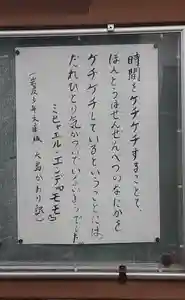 時間をケチケチすることで、
ほんとうはぜんぜんべつのなにかを
ケチケチしているということには、
だれひとり気がついていないようでした。
ミヒャエル・エンデ『モモ』
(岩波少年文庫版 大島かおり訳)